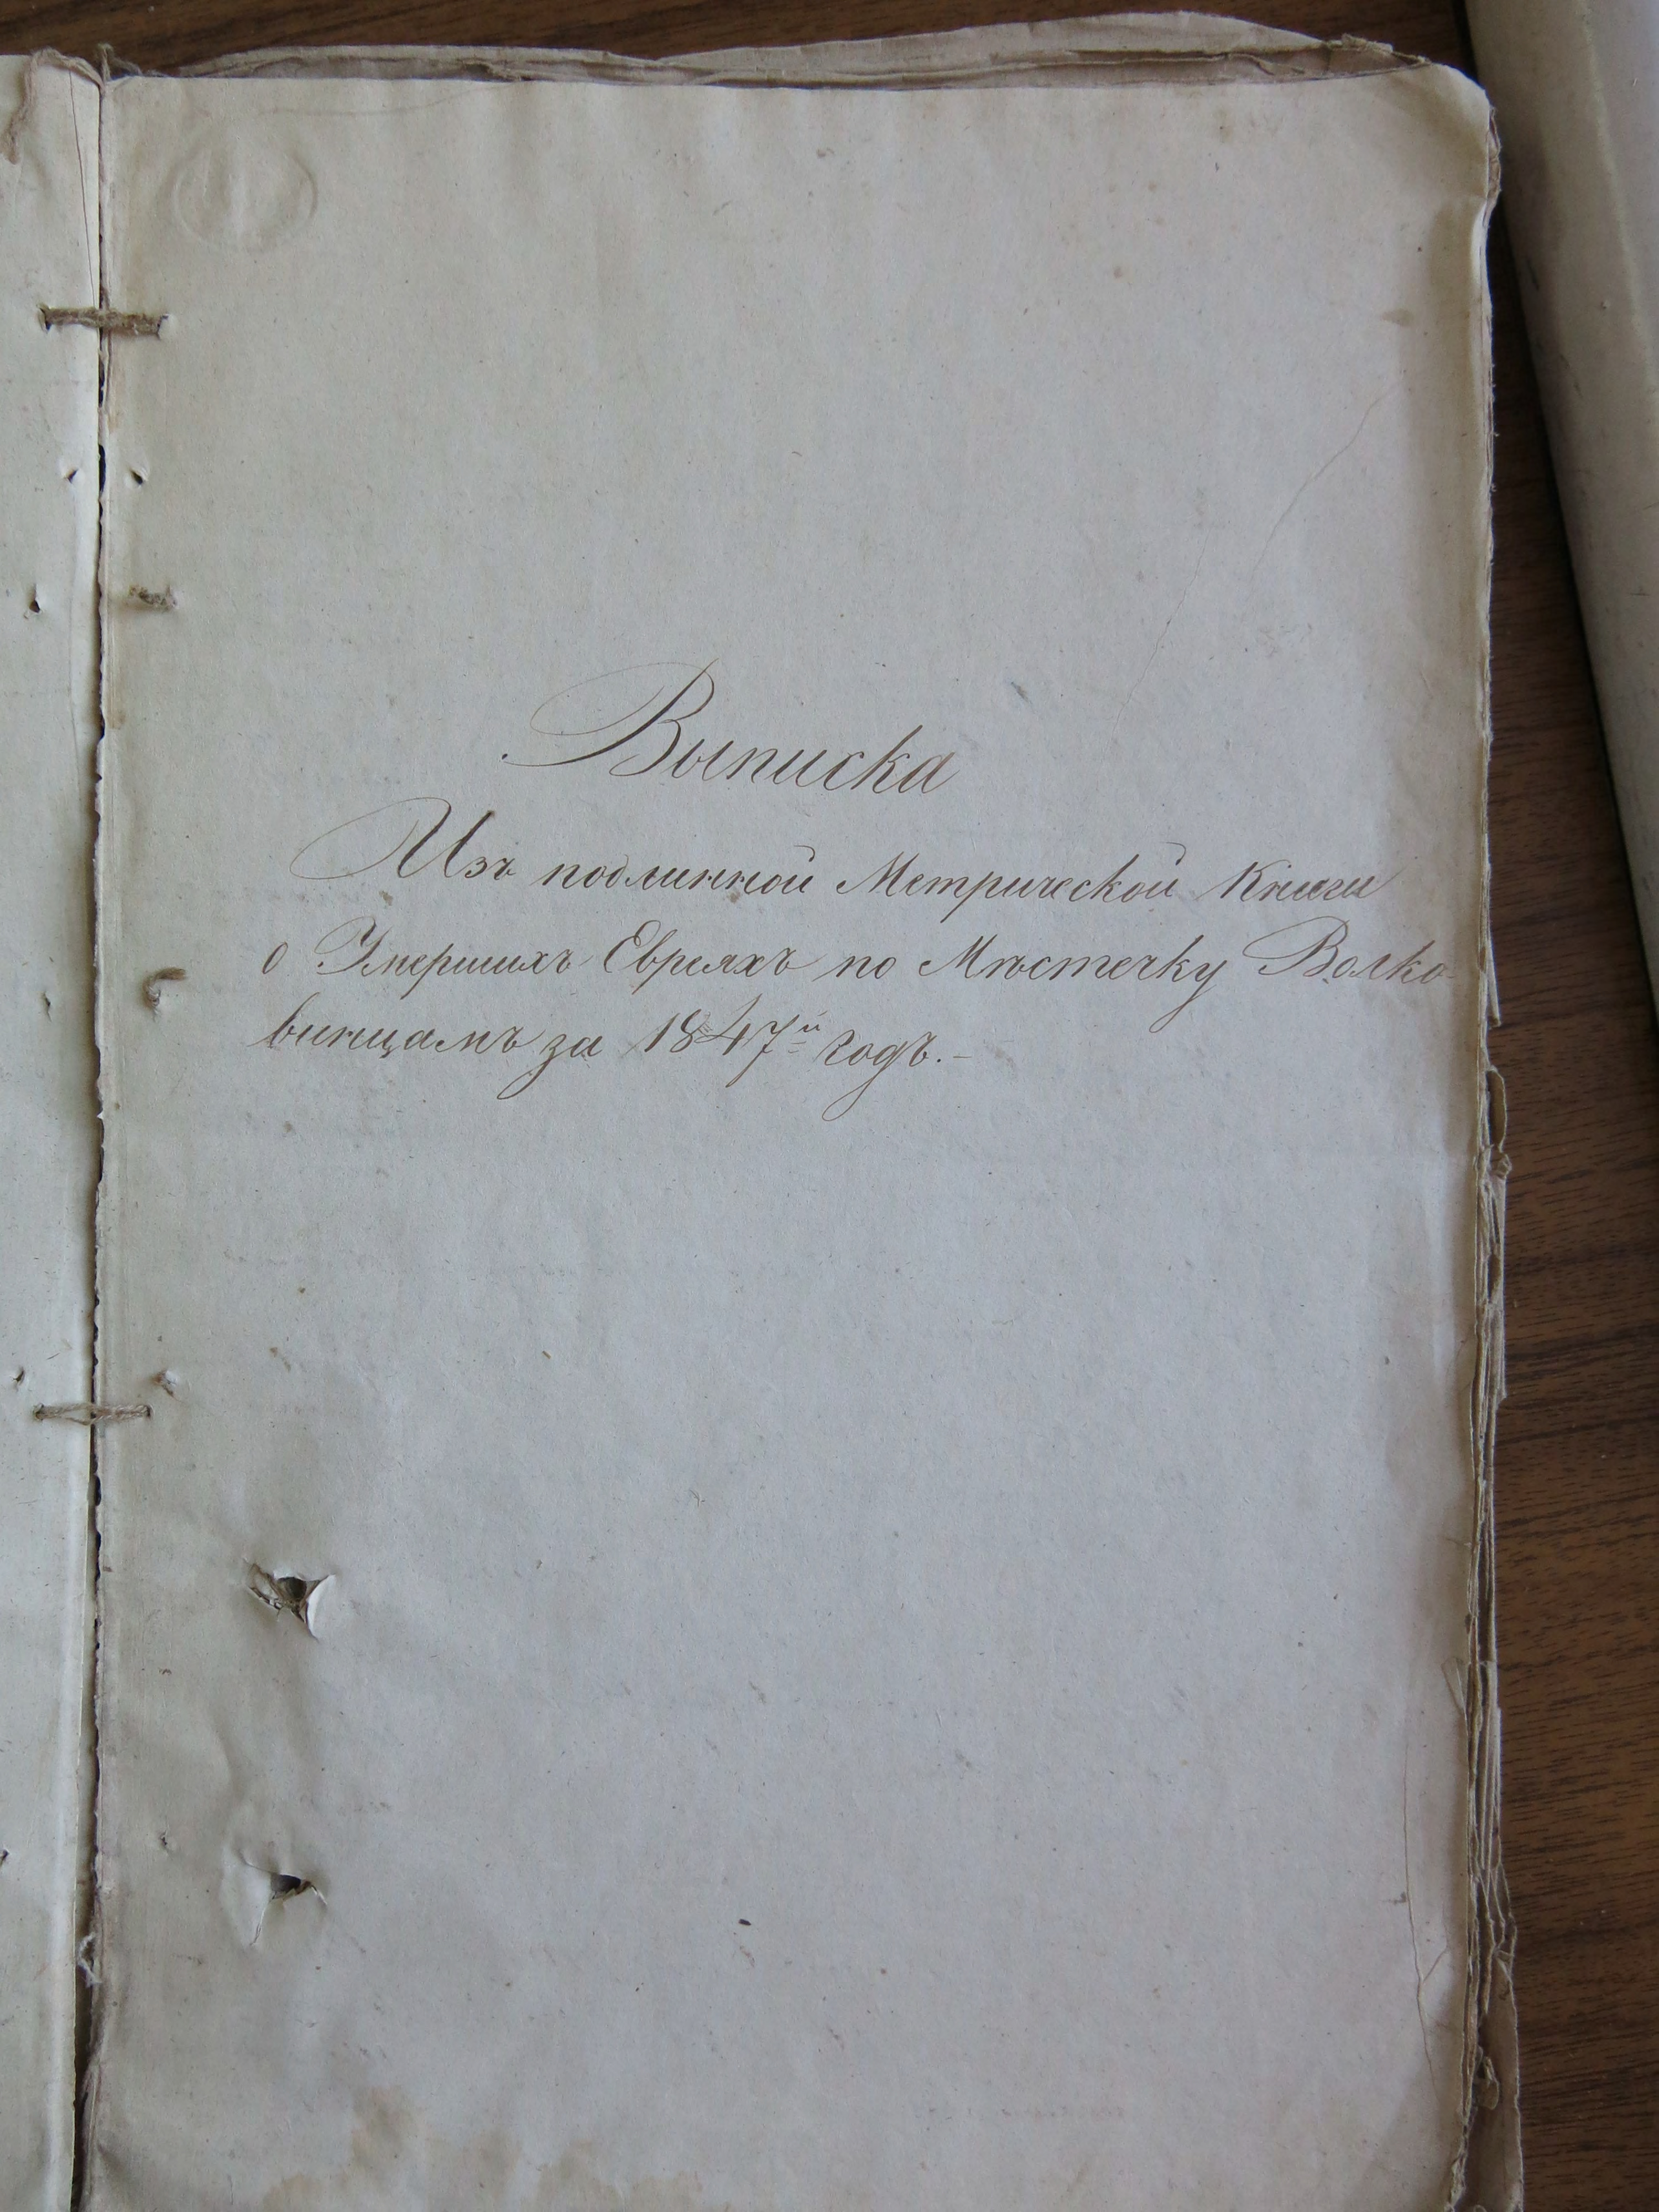 Выписка
Изъ подлинной Метрической Книги
о Умершихъ Евреяхъ по Мѣстечку Волко-
винцамъ за 1847й годъ.-